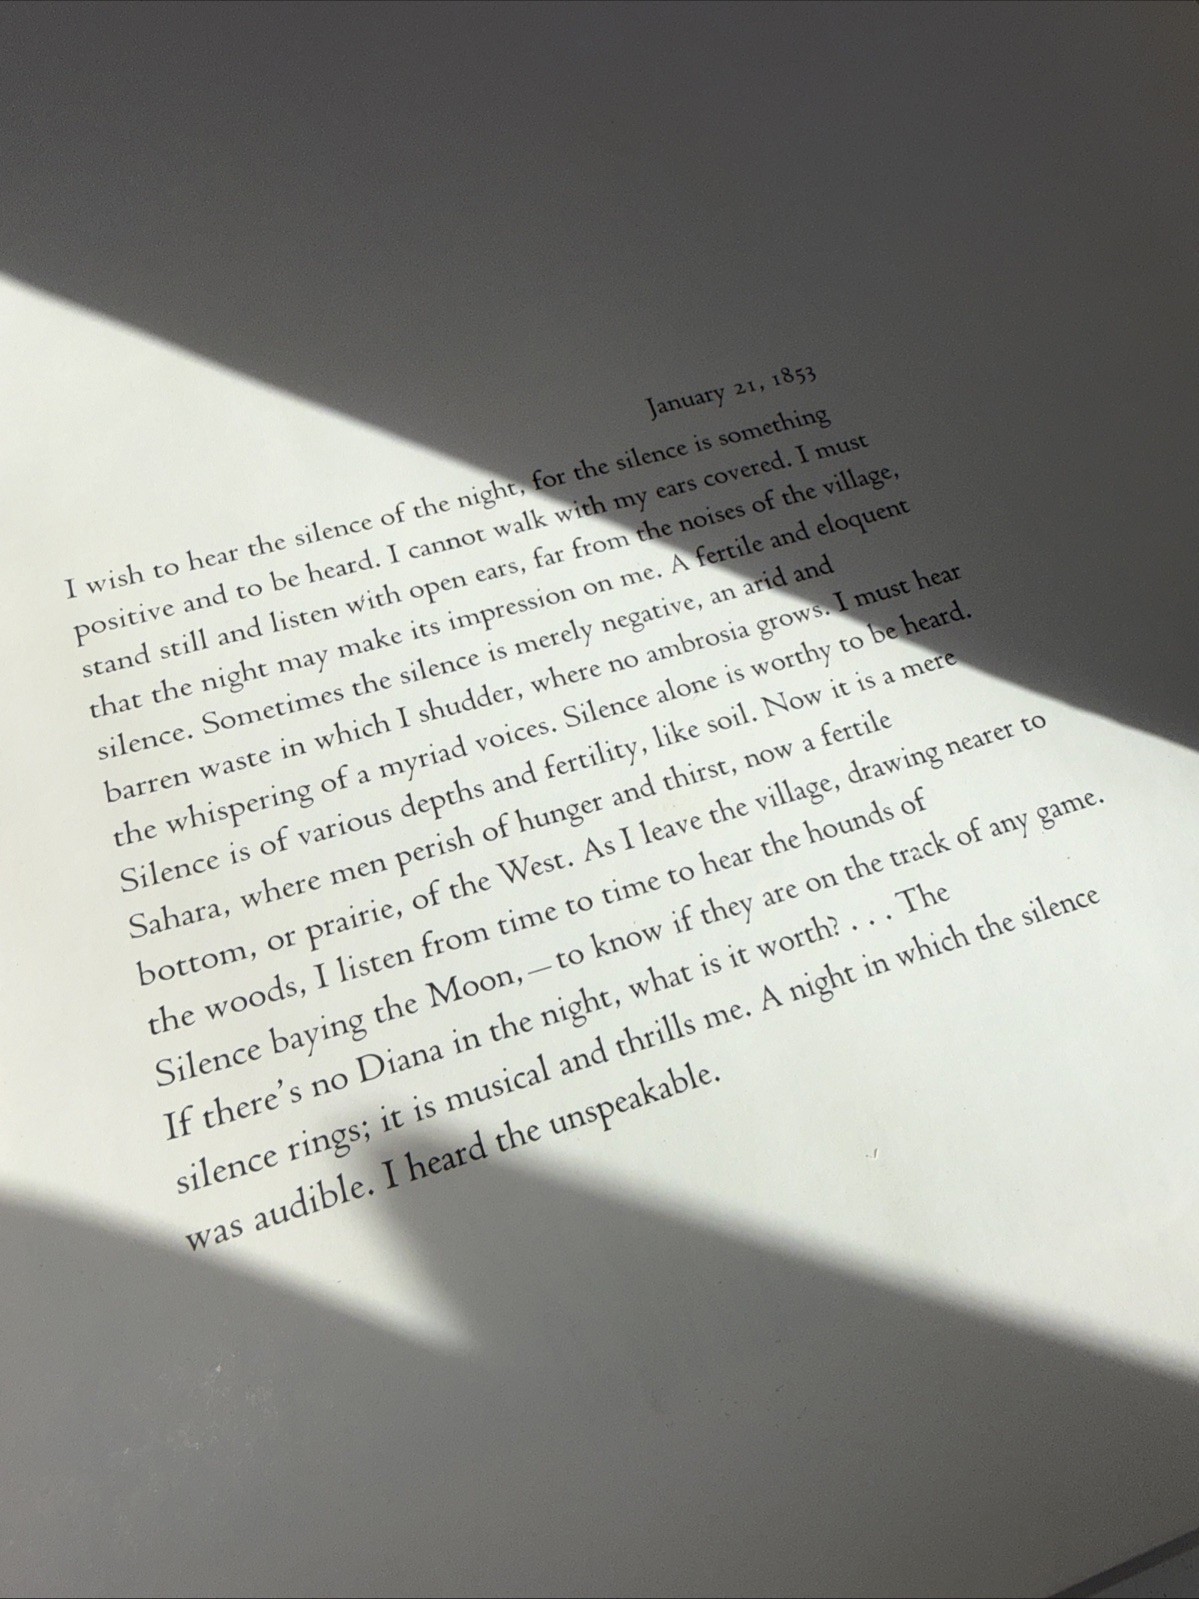 January 21, 1853
I wish to hear the silence of the night, for the silence is something
positive and to be heard. I cannot walk with my ears covered. I must
stand still and listen with open ears, far from the noises of the village,
that the night may make its impression on me. A fertile and eloquent
silence. Sometimes the silence is merely negative, an arid and
barren waste in which I shudder, where no ambrosia grows. I must hear
the whispering of a myriad voices. Silence alone is worthy to be heard.
Silence is of various depths and fertility, like soil. Now it is a mere
Sahara, where men perish of hunger and thirst, now a fertile
bottom, or prairie, of the West. As I leave the village, drawing nearer to
the woods, I listen from time to time to hear the hounds of
Silence baying the Moon,—to know if they are on the track of any game.
If there's no Diana in the night, what is it worth? . . . The
silence rings; it is musical and thrills me. A night in which the silence
was audible. I heard the unspeakable.